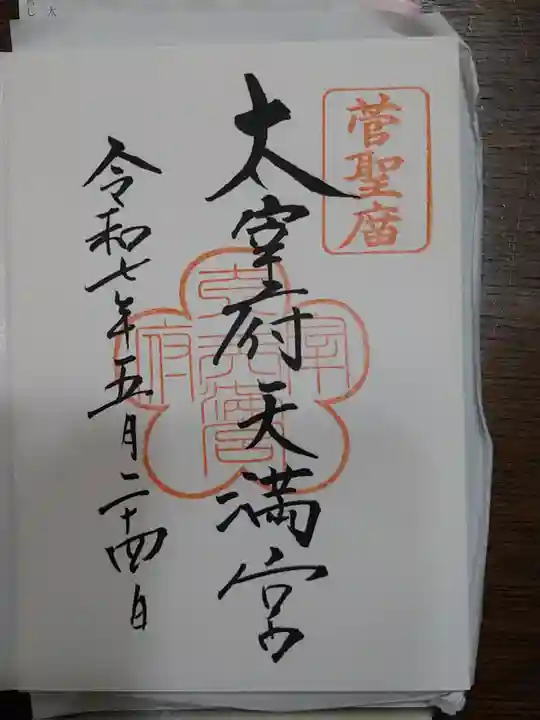 菅聖廟
太宰府天満宮
令和七年五月二十四日